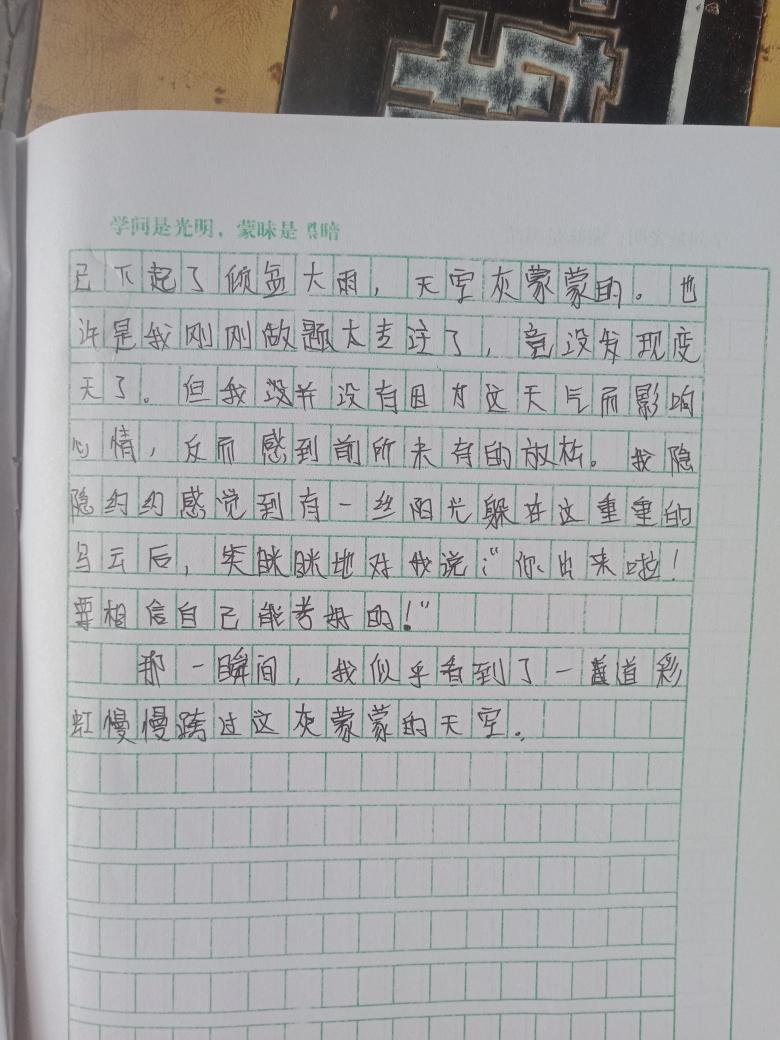 学问是光明，蒙昧是黑暗
已下起了倾盆大雨，天空灰蒙蒙的。也
许是我刚刚做题太专注了，竟没发现变
天了。但我并没有因为这天气而影响
心情，反而感到前所未有的放松。我隐
隐约约感觉到有一丝阳光躲在这重重的
乌云后，笑眯眯地对我说：“你出来啦！
要相信自己能考好的！”
那一瞬间，我似乎看到了一道彩
虹慢慢跨过这灰蒙蒙的天空。